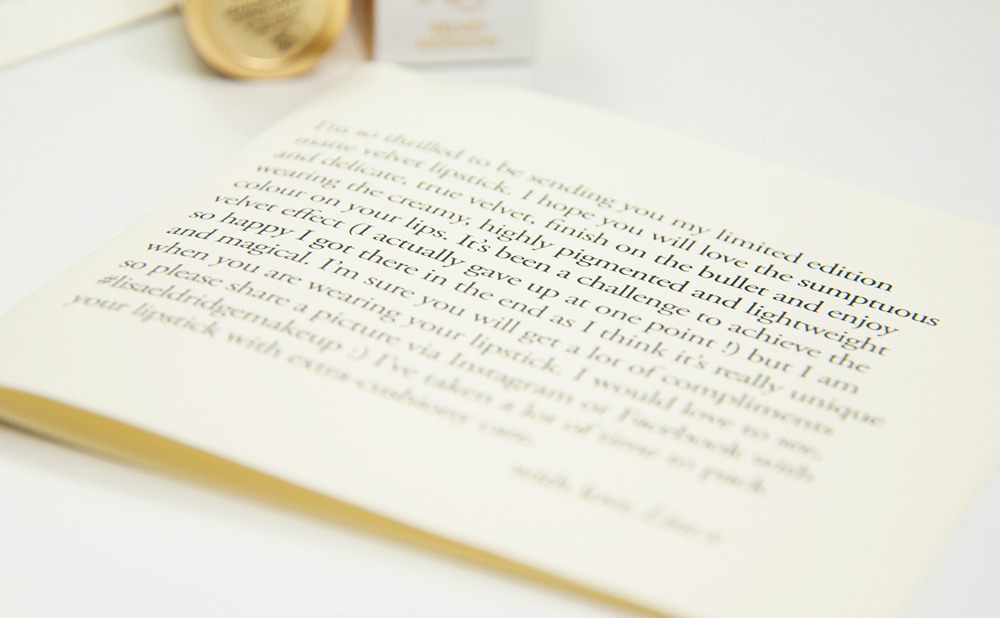 VELVET
I'm so thrilled to be sending you my limited edition
matte velvet lipstick. I hope you will love the sumptuous
and delicate, true velvet, finish on the bullet and enjoy
wearing the creamy, highly pigmented and lightweight
colour on your lips. It's been a challenge to achieve the
velvet effect (I actually gave up at one point !) but I am
so happy I got there in the end as I think it's really unique
and magical. I'm sure you will get a lot of compliments
when you are wearing your lipstick. I would love to see,
so please share a picture via Instagram or Facebook with
#lisaeldridgemakeup :) I've taken a lot of time to pack
your lipstick with extra-cushiony care.
with love Lisa x